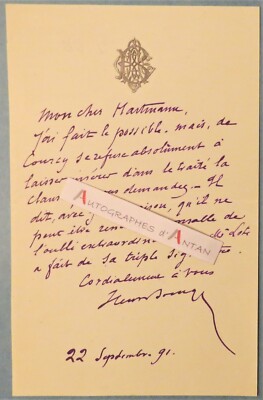 Mon cher Hartmann,
J'ai fait le possible, mais, de
Courcy se refuse absolument à
laisser insérer dans le traité la
clau vous demandez. Il
dit, avec raison, qu'il ne
peut être ren nsable de
l'oubli extraordin Mr Loti
a fait de sa triple sig
Cordialement à vous
22 Septembre 91.
AUTOGRAPHES
D'ANTAN